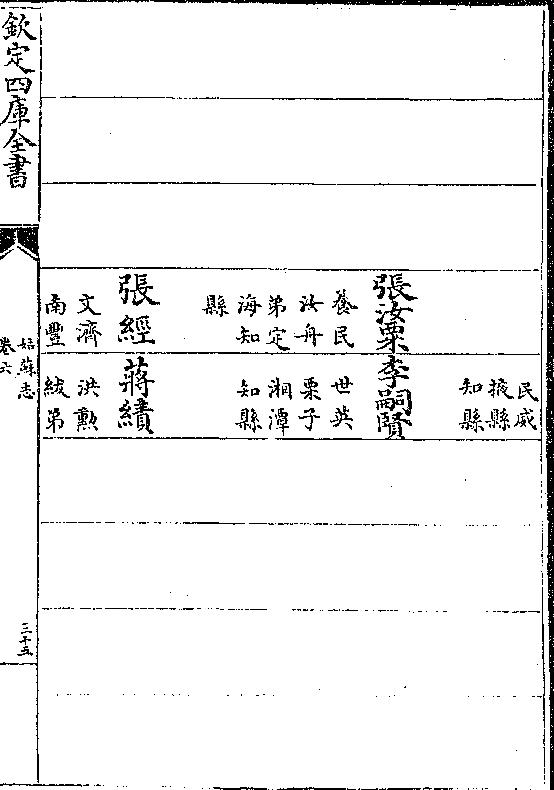 民威
掖縣
知縣
張汝栗
養民
汝舟
弟定
海知
縣
李嗣賢
世英
栗子
湘潭
知縣
張經
文濟
南豐
蔣績
洪勲
紱弟
欽定四庫全書
姑蘇志
卷六
三十五